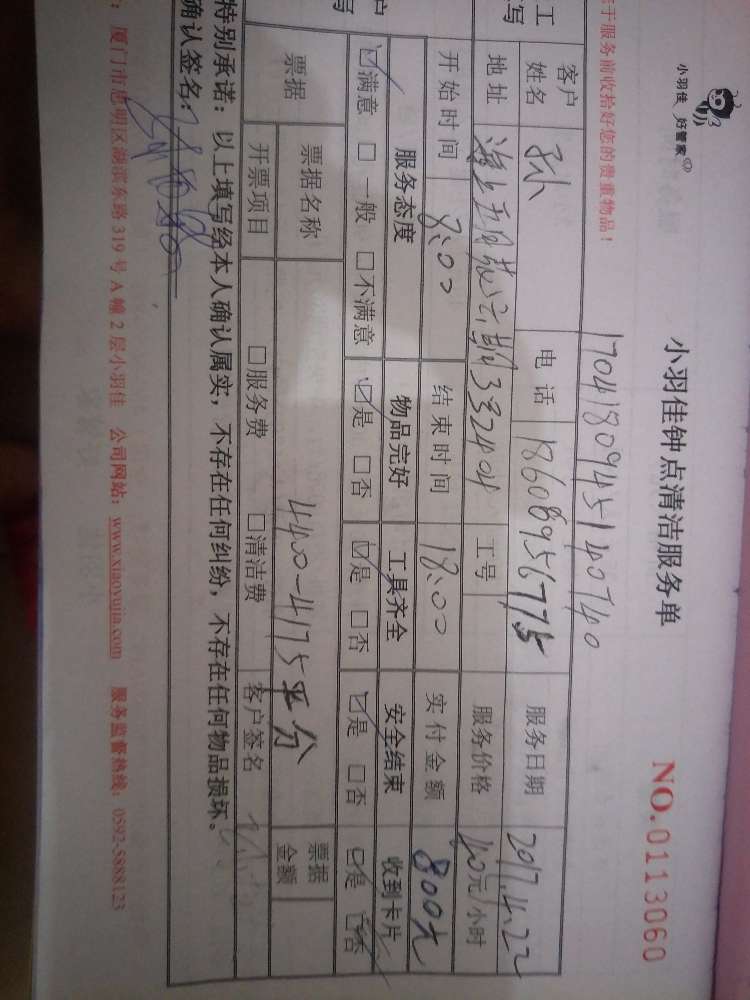 小羽佳 好管家
小羽佳钟点清洁服务单
NO.0113060
于服务前收拾好您的贵重物品！
1704180945140740
工
写
客户姓名 孙
电话 18608956775
服务日期 2017.4.22
地址 332404
工号
服务价格 40元/小时
开始时间 8:00
结束时间 18:00
实付金额 800元
户
写
服务态度 物品完好 工具齐全 安全结束 收到卡片
☑满意 □一般 □不满意 ☑是 □否 ☑是 □否 ☑是 □否 ☑是 □否
票据
票据名称 440-4175平分
票据金额
开票项目 □服务费 □清洁费 客户签名
特别承诺：以上填写经本人确认属实，不存在任何纠纷，不存在任何物品损坏。
确认签名：
：厦门市思明区湖滨东路319号A幢2层小羽佳 公司网站：www.xiaoyujia.com 服务监督热线：0592-5888123